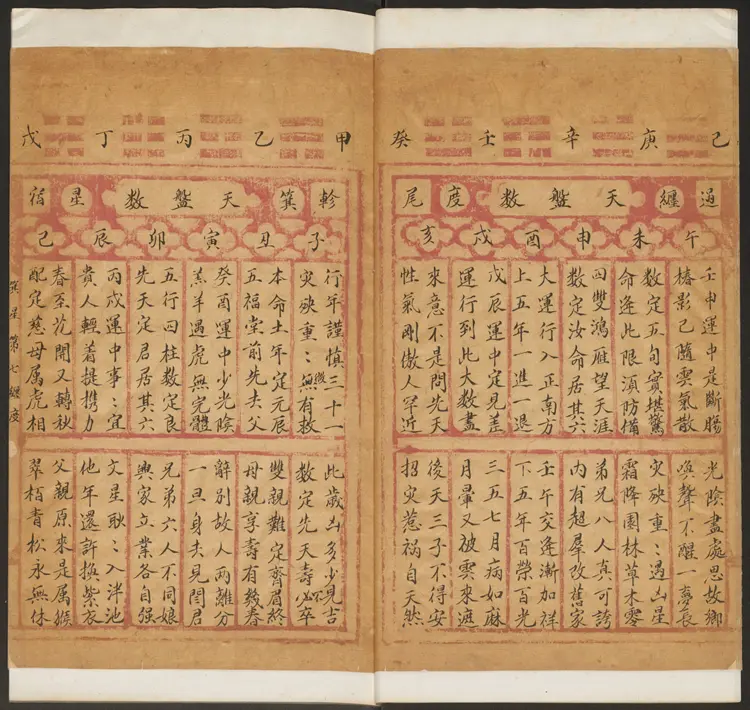 己庚辛壬癸
過纏天盤數度尾
午未申酉戌亥
壬申運中是斷腸
椿影已隨雲氣散
數定五旬實堪驚
命逢此限須防備
四雙鴻雁望天涯
數定汝命居其六
大運行入正南方
上五年一進一退
戊辰運中定見差
運行到此大數盡
來意不是問先天
性氣剛傲人罕近
光陰盡處思故鄉
喚聲不醒一夢長
灾殃重〻遇凶星
霜降園林草木零
弟兄八人真可誇
內有超羣改舊家
壬午交逢漸加祥
下五年百榮百光
三五七月病如麻
月暈又被雲來遮
後天三子不得安
招灾惹禍自天然
甲乙丙丁戊
軫箕天盤數星宿
子丑寅卯辰己
行年謹慎三十一
灾殃重〻無有救
本命土年定元辰
五福堂前先去父
癸酉運中少光陰
羔羊遇虎無完體
五行四柱數定良
先天定君居其六
丙戌運中事〻宜
貴人輕着提携力
春至花開又轉秋
配定慈母属虎相
此歲凶多少見吉
數定先天壽必不卒
雙親難定齊眉終
母親享壽有幾春
辭別故人兩離分
一旦身去見閻君
兄弟六人不同娘
興家立業各自强
文星耿〻入泮池
他年還許換紫衣
父親原來是属猴
翠栢青松永無休
箕星第七纏度